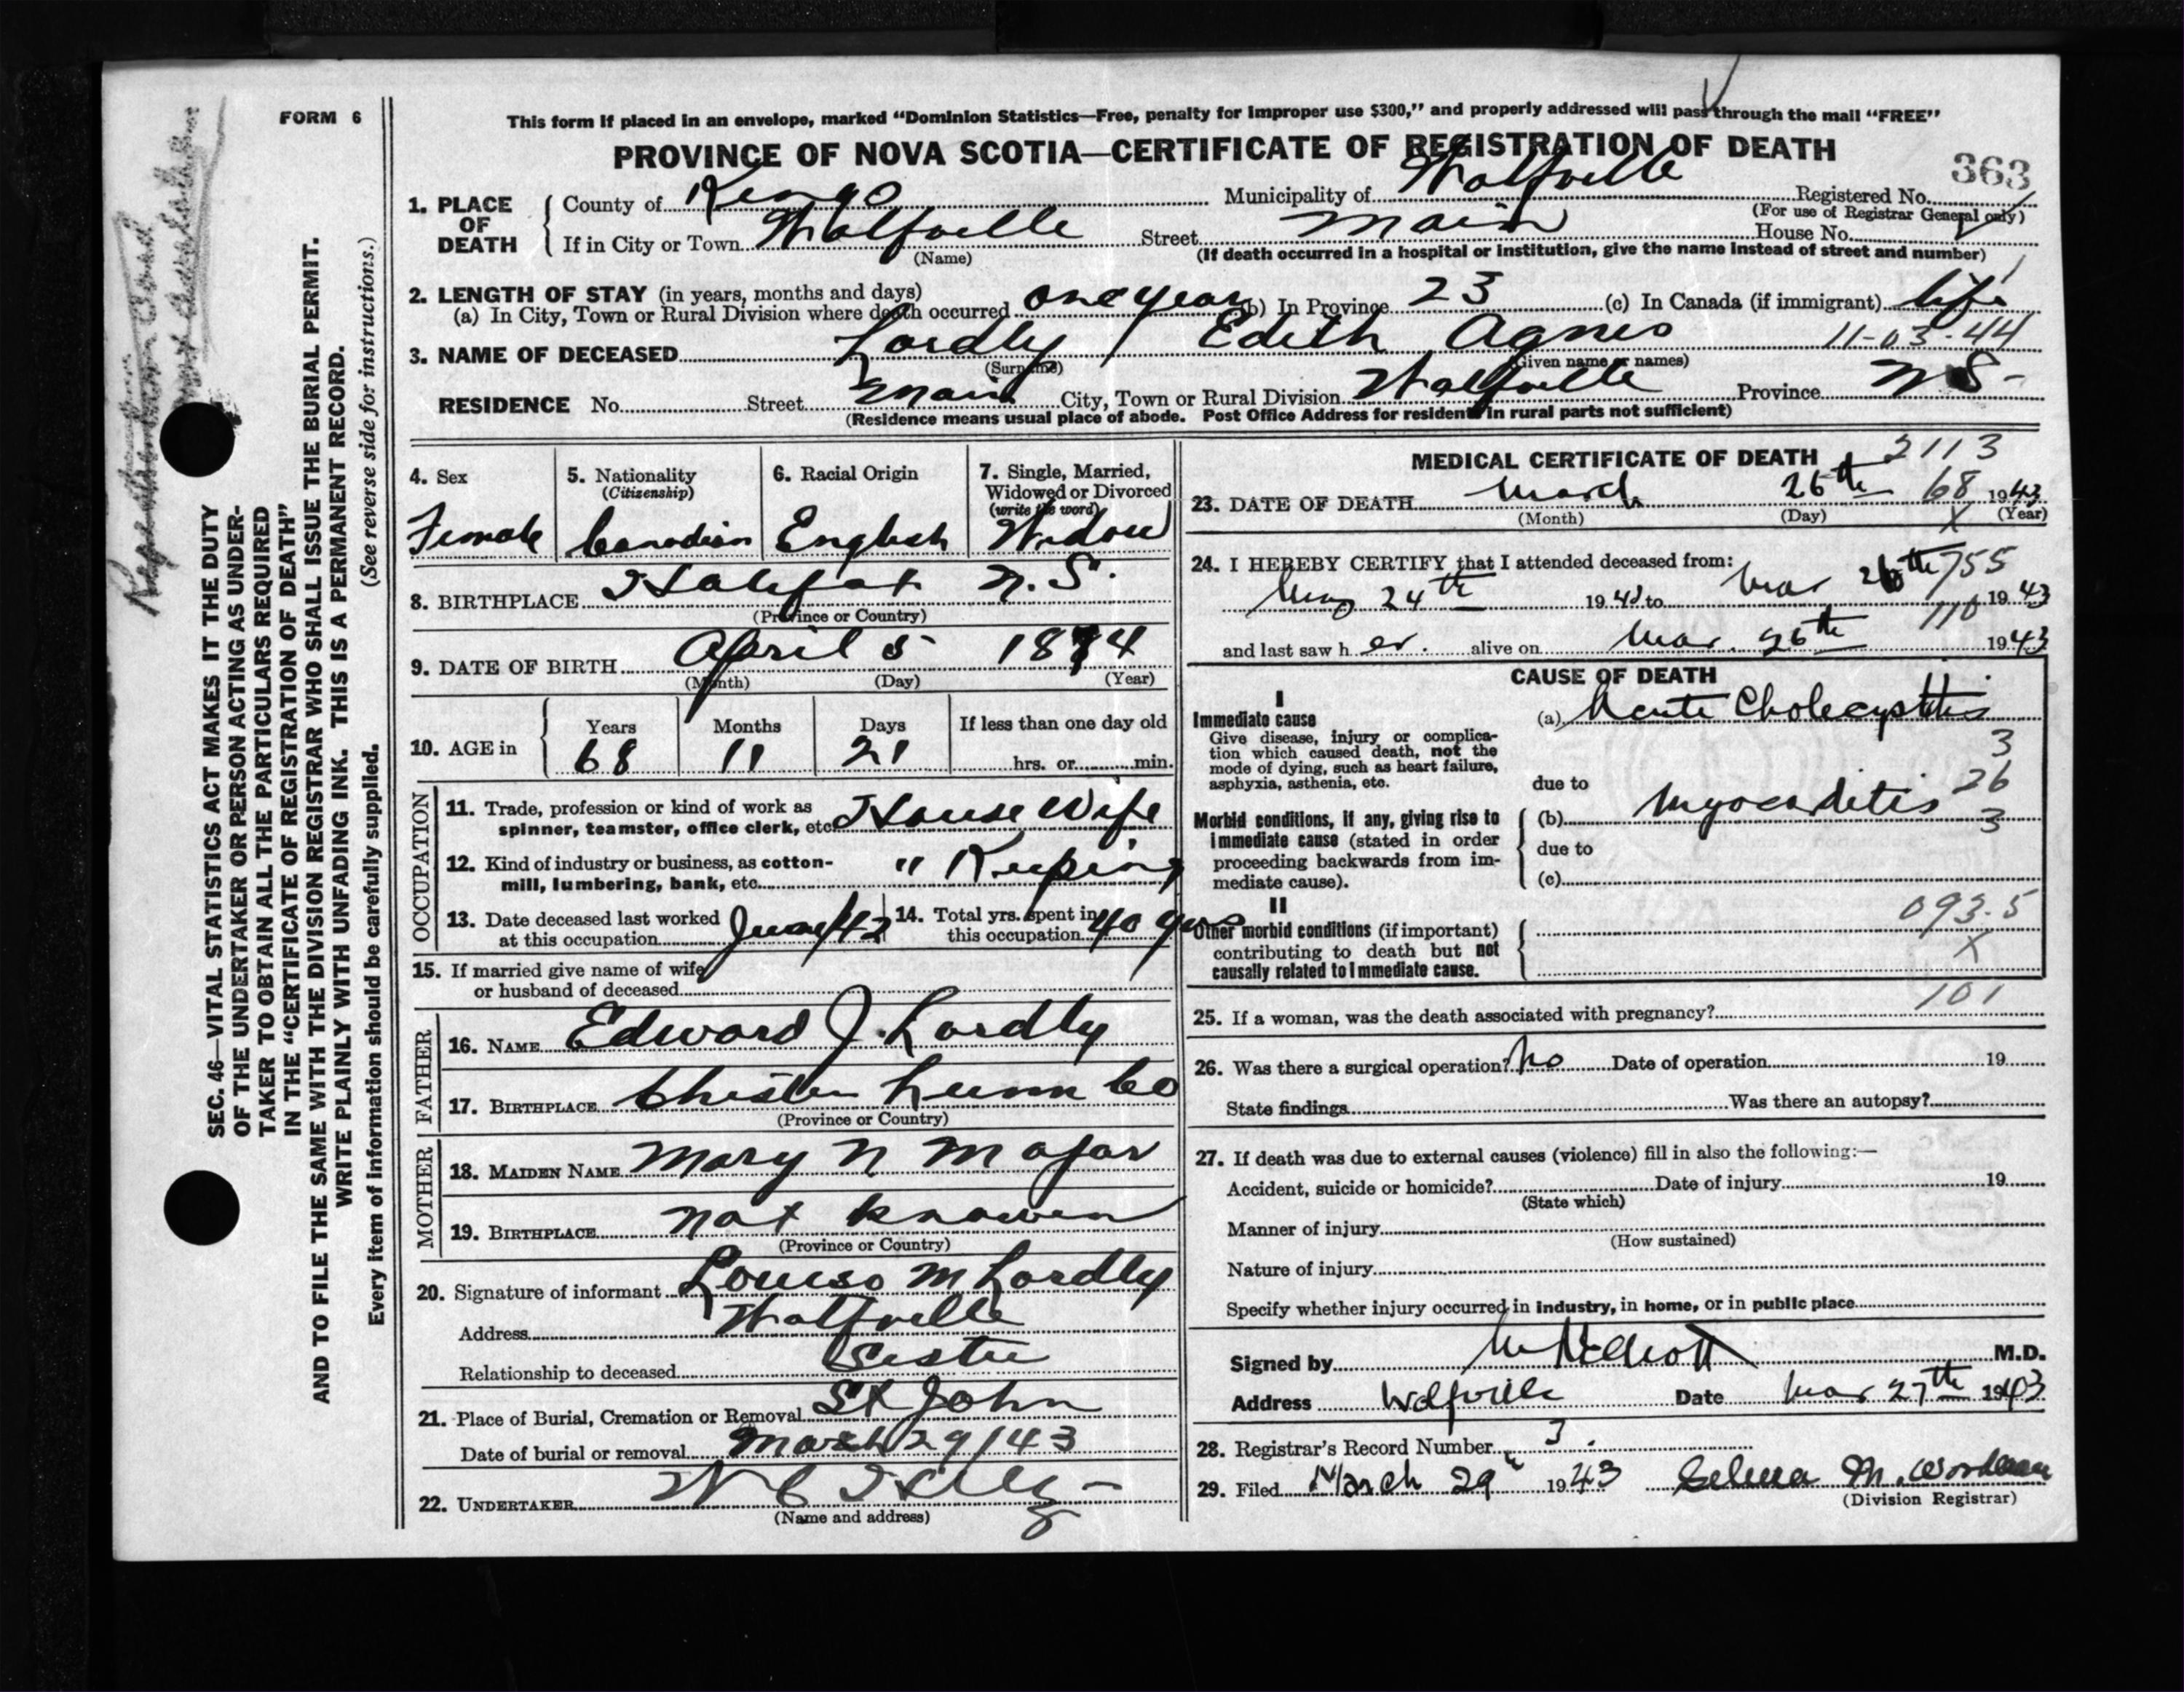 FORM 6
This form if placed in an envelope, marked “Dominion Statistics—Free, penalty for improper use $300,” and properly addressed will pass through the mail “FREE”
PROVINCE OF NOVA SCOTIA—CERTIFICATE OF REGISTRATION OF DEATH
363
1. PLACE OF DEATH
County of Kings Municipality of Wolfville Registered No.
(For use of Registrar General only)
If in City or Town Wolfville Street Main House No.
(Name) (If death occurred in a hospital or institution, give the name instead of street and number)
2. LENGTH OF STAY (in years, months and days)
(a) In City, Town or Rural Division where death occurred one year (b) In Province 23 (c) In Canada (if immigrant) life
3. NAME OF DECEASED Lordly / Edith Agnes 11-03-44
(Surname) (Given name or names)
RESIDENCE No. Street Main City, Town or Rural Division Wolfville Province N S-
(Residence means usual place of abode. Post Office Address for residents in rural parts not sufficient)
4. Sex Female
5. Nationality (Citizenship) Canadian
6. Racial Origin English
7. Single, Married, Widowed or Divorced (write the word) Widow
8. BIRTHPLACE Halifax N.S.
(Province or Country)
9. DATE OF BIRTH April 5 1874
(Month) (Day) (Year)
10. AGE in Years 68 Months 11 Days 21 If less than one day old hrs. or min.
OCCUPATION
11. Trade, profession or kind of work as spinner, teamster, office clerk, etc. House Wife
12. Kind of industry or business, as cotton-mill, lumbering, bank, etc. " Keeping
13. Date deceased last worked at this occupation June/42
14. Total yrs. spent in this occupation 40 yrs
15. If married give name of wife or husband of deceased
FATHER
16. NAME Edward J. Lordly
17. BIRTHPLACE Chester Lunn Co
(Province or Country)
MOTHER
18. MAIDEN NAME Mary N
19. BIRTHPLACE not known
(Province or Country)
20. Signature of informant Louiso M Lordly
Address Wolfville
Relationship to deceased Sister
21. Place of Burial, Cremation or Removal St John
Date of burial or removal March 29/43
22. UNDERTAKER
(Name and address)
MEDICAL CERTIFICATE OF DEATH 2113
23. DATE OF DEATH March 26th 68 1943
(Month) (Day) X (Year)
24. I HEREBY CERTIFY that I attended deceased from:
24th 194 to Mar 26th 755 1943
110
and last saw her. alive on Mar. 26th 1943
CAUSE OF DEATH
I
Immediate cause
Give disease, injury or complication which caused death, not the mode of dying, such as heart failure, asphyxia, asthenia, etc.
(a) Acute Cholecystitis
3
due to 26
Morbid conditions, if any, giving rise to immediate cause (stated in order proceeding backwards from immediate cause).
(b) Myocarditis
3
due to
(c)
II
Other morbid conditions (if important) contributing to death but not causally related to immediate cause.
093.5
X
101
25. If a woman, was the death associated with pregnancy?
26. Was there a surgical operation? No Date of operation 19
State findings Was there an autopsy?
27. If death was due to external causes (violence) fill in also the following:—
Accident, suicide or homicide? Date of injury 19
(State which)
Manner of injury
(How sustained)
Nature of injury
Specify whether injury occurred in industry, in home, or in public place
Signed by M.D.
Address Wolfville Date Mar 27th 1943
28. Registrar’s Record Number 3.
29. Filed March 29th 1943 M.
(Division Registrar)
SEC. 46—VITAL STATISTICS ACT MAKES IT THE DUTY
OF THE UNDERTAKER OR PERSON ACTING AS UNDER-
TAKER TO OBTAIN ALL THE PARTICULARS REQUIRED
IN THE “CERTIFICATE OF REGISTRATION OF DEATH”
AND TO FILE THE SAME WITH THE DIVISION REGISTRAR WHO SHALL ISSUE THE BURIAL PERMIT.
WRITE PLAINLY WITH UNFADING INK. THIS IS A PERMANENT RECORD.
(See reverse side for instructions.)
Every item of information should be carefully supplied.